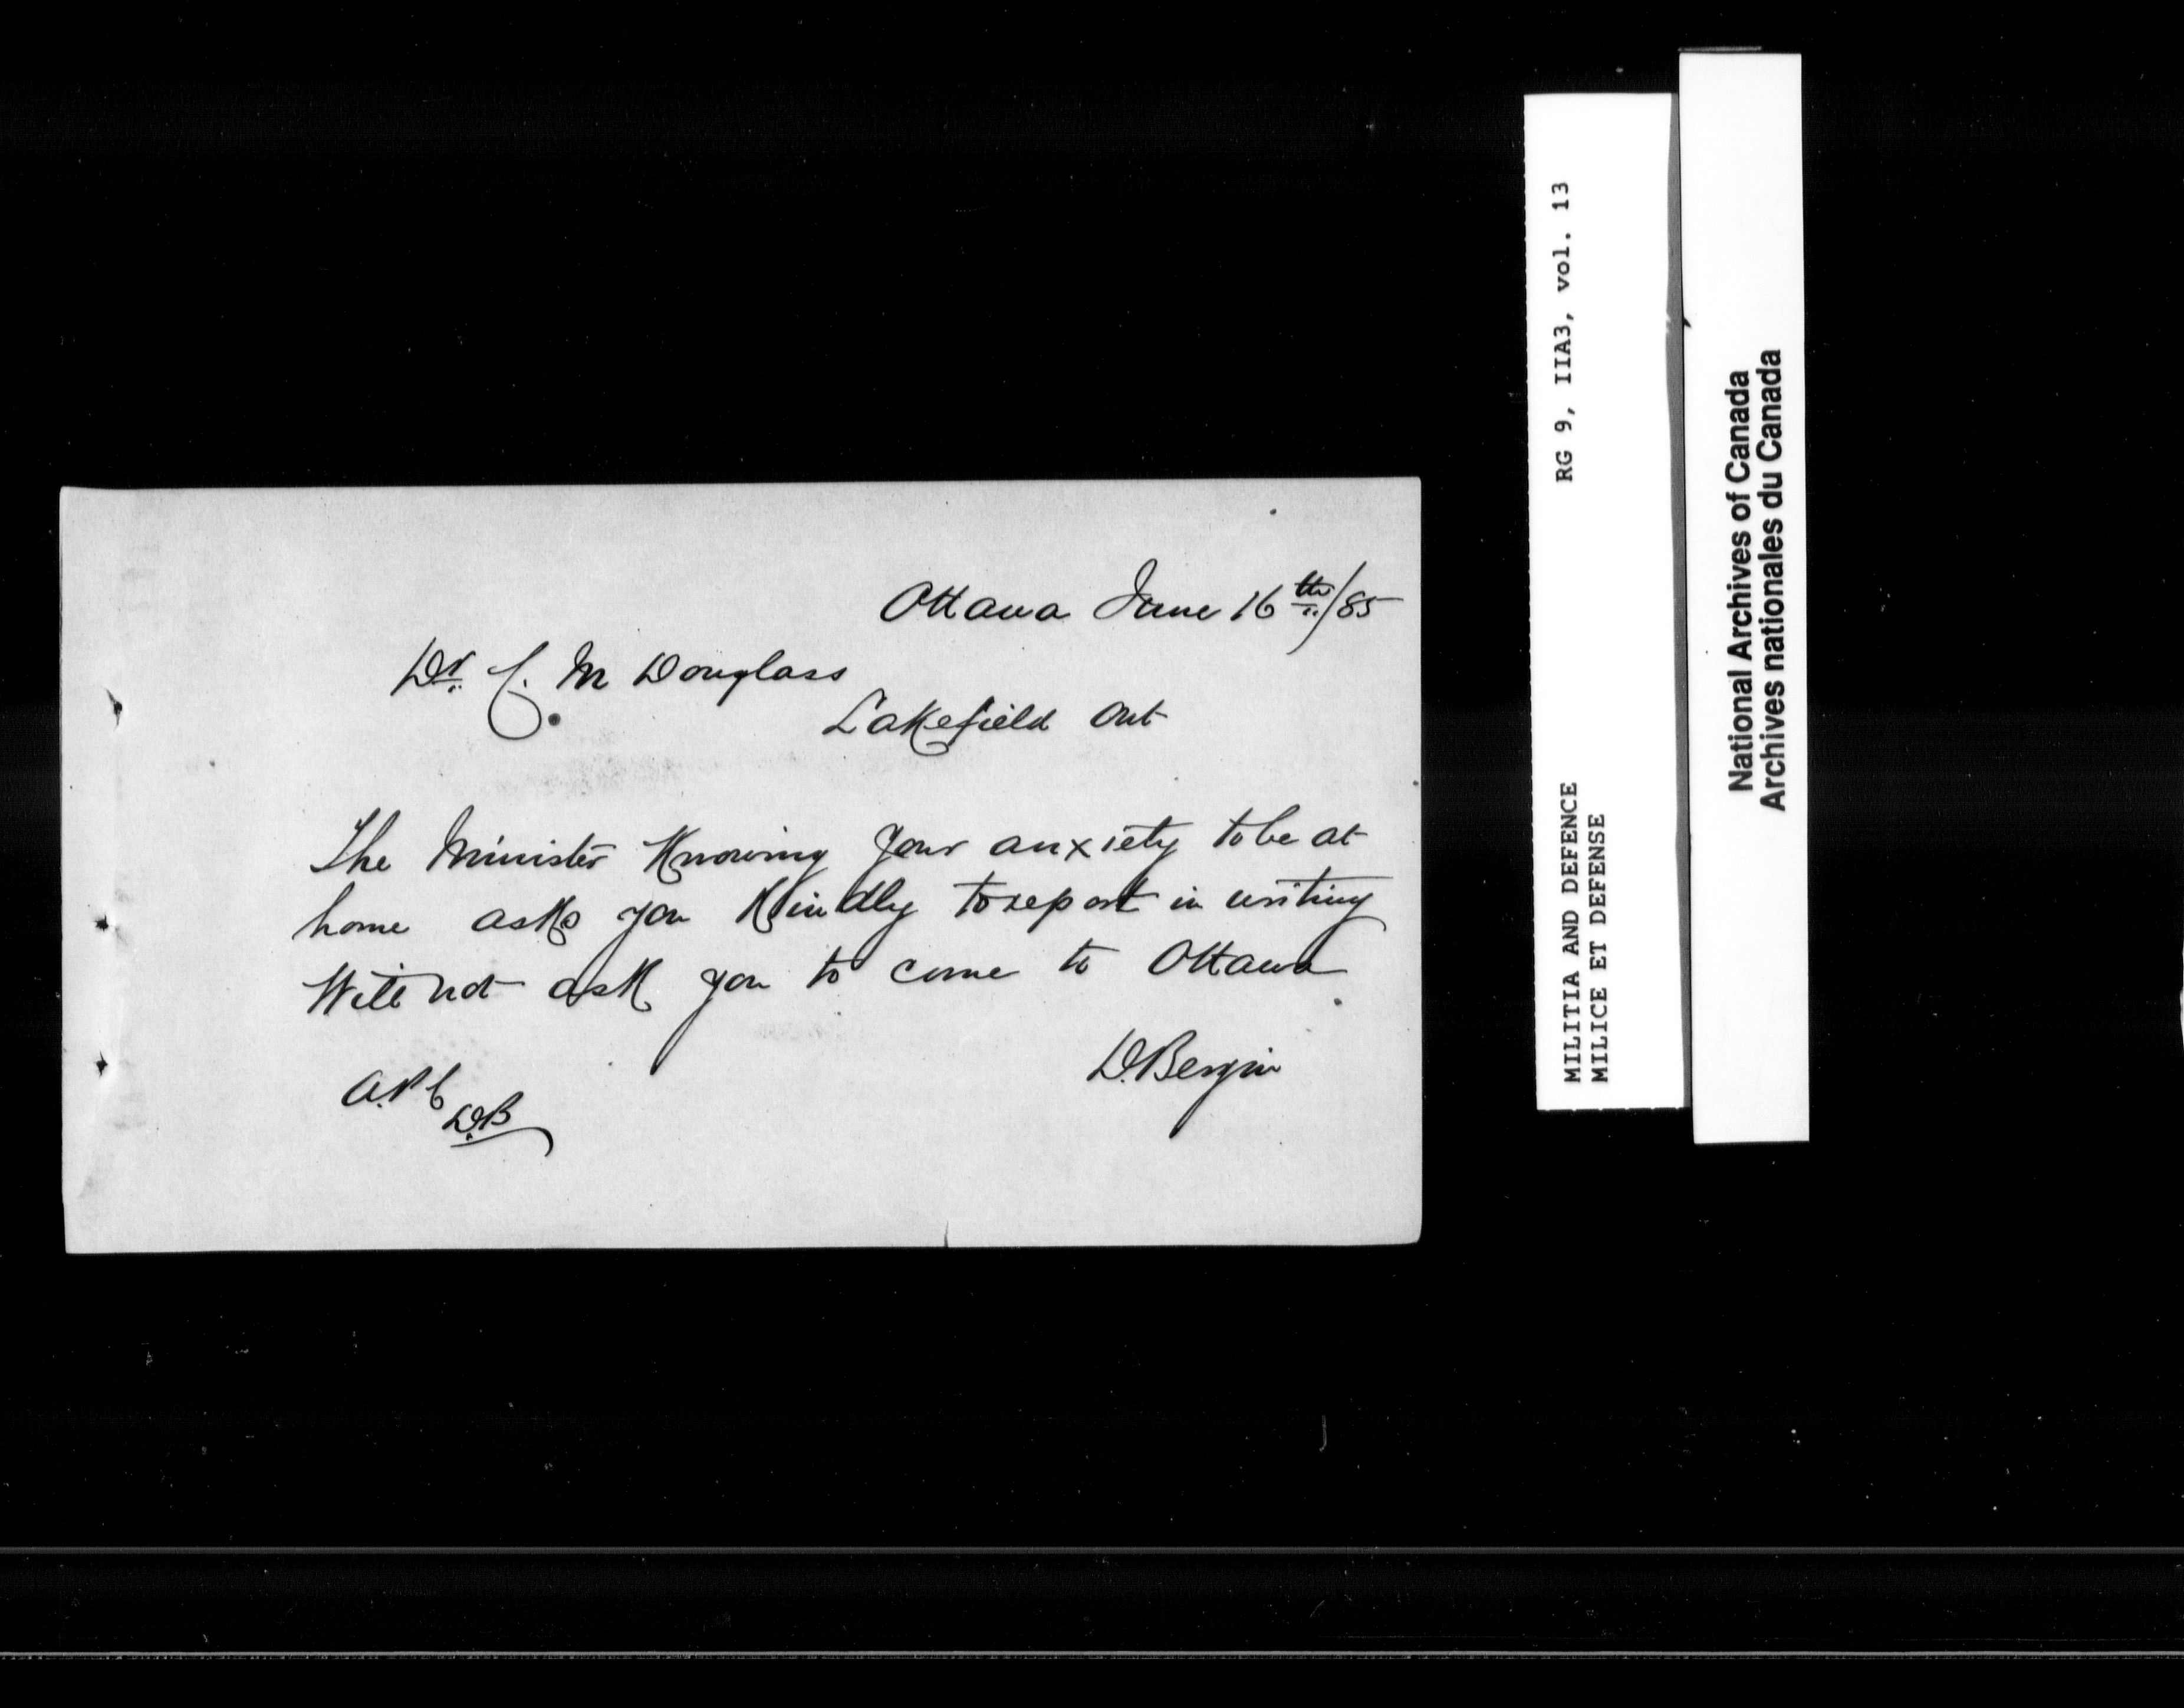 Ottawa June 16th/85
Dr C. M Douglass
Lakefield Ont
The Minister Knowing your anxiety to be at
home asks you Kindly to report in writing
Will not ask you to come to Ottawa
D. Bergin
D.B
RG 9, IIA3, vol. 13
MILITIA AND DEFENCE
MILICE ET DEFENSE
National Archives of Canada
Archives nationales du Canada